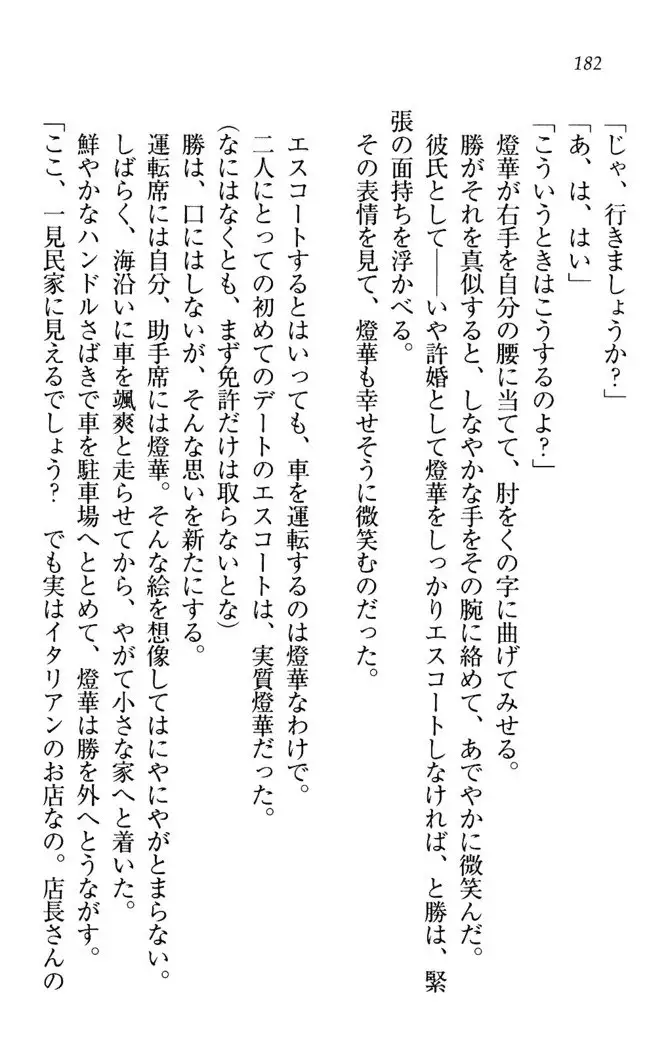 182
「じゃ、行きましょうか？」
「あ、は、はい」
「こういうときはこうするのよ？」
燈華が右手を自分の腰に当てて、肘をくの字に曲げてみせる。
勝がそれを真似すると、しなやかな手をその腕に絡めて、あでやかに微笑んだ。
彼氏として――いや許婚として燈華をしっかりエスコートしなければ、と勝は、緊
張の面持ちを浮かべる。
その表情を見て、燈華も幸せそうに微笑むのだった。
エスコートするとはいっても、車を運転するのは燈華なわけで。
二人にとっての初めてのデートのエスコートは、実質燈華だった。
(なにはなくとも、まず免許だけは取らないとな)
勝は、口にはしないが、そんな思いを新たにする。
運転席には自分、助手席には燈華。そんな絵を想像してはにやにやがとまらない。
しばらく、海沿いに車を颯爽と走らせてから、やがて小さな家へと着いた。
鮮やかなハンドルさばきで車を駐車場へととめて、燈華は勝を外へとうながす。
「ここ、一見民家に見えるでしょう？　でも実はイタリアンのお店なの。店長さんの